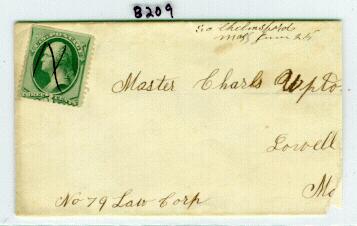 B209
So Chelmsford
Mass June 25
Master Charls Upto
Lowell
No 79 Law Corp